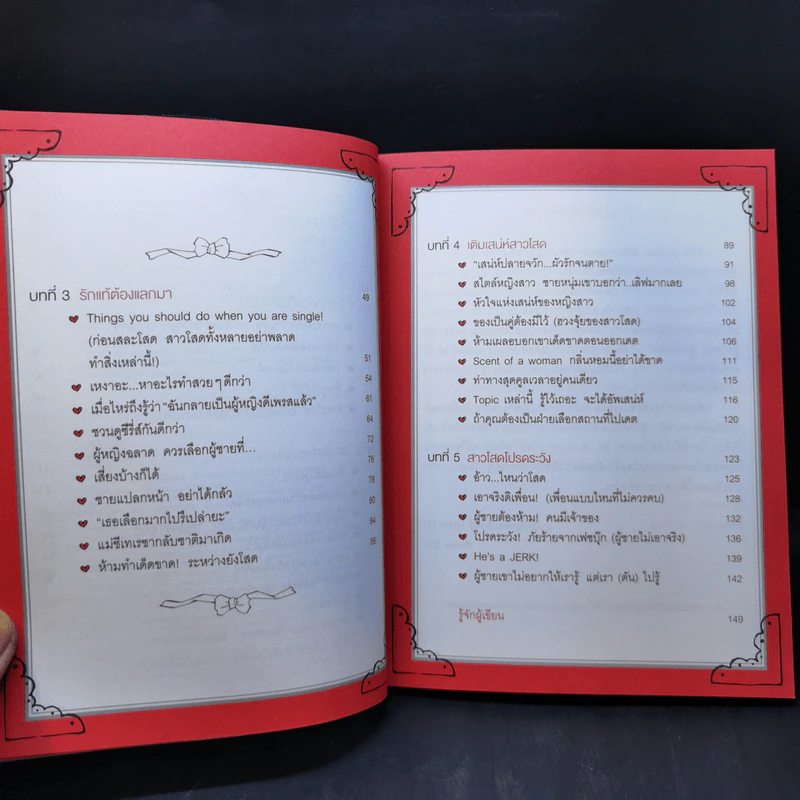 บทที่ 3 รักแท้ต้องแลกมา 49
Things you should do when you are single!
(ก่อนสละโสด สาวโสดทั้งหลายอย่าพลาด
ทำสิ่งเหล่านี้!) 51
เหงาอะ...หาอะไรทำสวยๆดีกว่า 54
เมื่อไหร่ถึงรู้ว่า "ฉันกลายเป็นผู้หญิงดีเพรสแล้ว" 61
ชวนดูซีรี่ส์กันดีกว่า 64
ผู้หญิงฉลาด ควรเลือกผู้ชายที่... 72
เสี่ยงบ้างก็ได้ 76
ชายแปลกหน้า อย่าได้กลัว 78
"เธอเลือกมากไปรึเปล่ายะ" 80
แม่ชีเทเรซากลับชาติมาเกิด 84
ห้ามทำเด็ดขาด! ระหว่างยังโสด 86
บทที่ 4 เติมเสน่ห์สาวโสด 89
"เสน่ห์ปลายจวัก...ผัวรักจนตาย!" 91
สไตล์หญิงสาว ชายหนุ่มเขาบอกว่า..เลิฟมากเลย 98
หัวใจแห่งเสน่ห์ของหญิงสาว 102
ของเป็นคู่ต้องมีไว้ (ฮวงจุ้ยของสาวโสด) 104
ห้ามเผลอบอกเขาเด็ดขาดตอนออกเดต 106
Scent of a woman กลิ่นหอมนี้อย่าได้ขาด 111
ท่าทางสุดคูลเวลาอยู่คนเดียว 115
Topic เหล่านี้ รู้ไว้เถอะ จะได้อัพเสน่ห์ 116
ถ้าคุณต้องเป็นฝ่ายเลือกสถานที่ไปเดต 120
บทที่ 5 สาวโสดโปรดระวัง 123
อ้าว...ไหนว่าโสด 125
เอาจริงดิเพื่อน! (เพื่อนแบบไหนที่ไม่ควรคบ) 128
ผู้ชายต้องห้าม! คนมีเจ้าของ 132
โปรดระวัง! ภัยร้ายจากเฟซบุ๊ก (ผู้ชายไม่เอาจริง) 136
He's a JERK! 139
ผู้ชายเขาไม่อยากให้เรารู้ แต่เรา (ดัน) ไปรู้ 142
รู้จักผู้เขียน 149